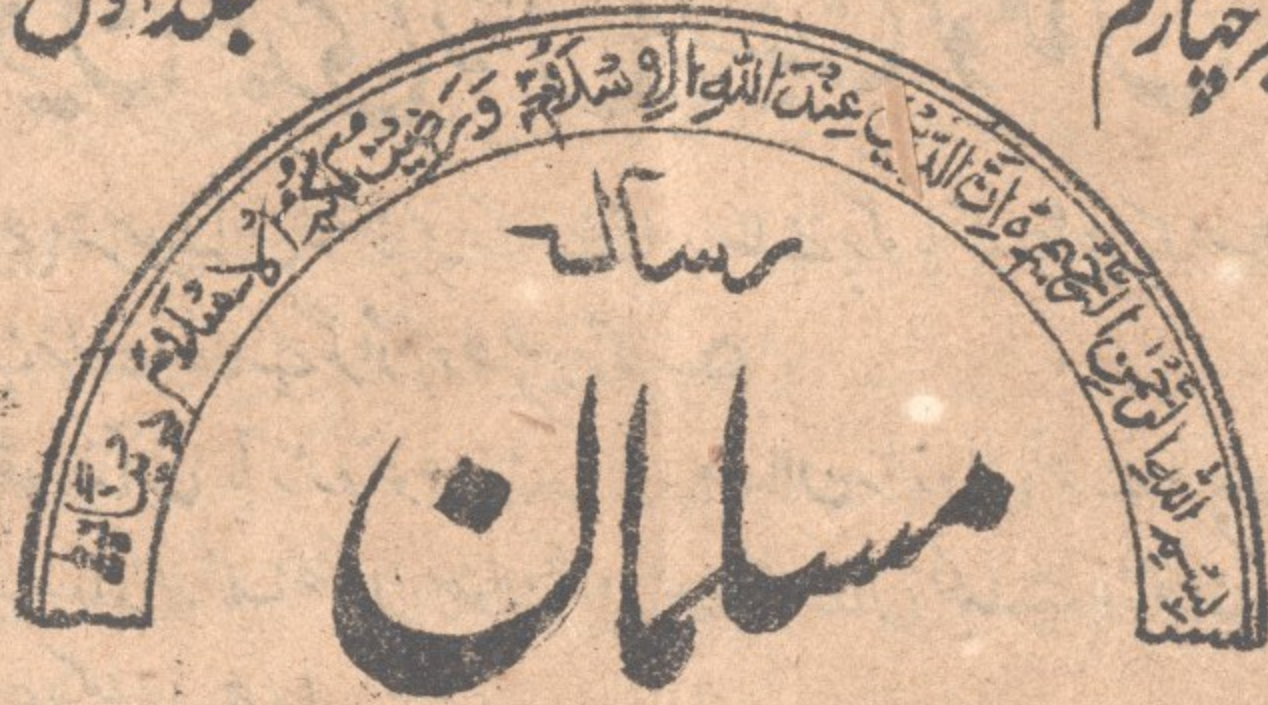 چہارم
جلد اول
بِسْمِ اللهِ الرَّحْمٰنِ الرَّحِيْمِ ہ اِنَّ الدِّيْنَ عِنْدَ اللهِ الْاِسْلَامُ وَرَضِيْتُ لَكُمُ الْاِسْلَامَ دِيْنًا
رسالہ
مسلمان